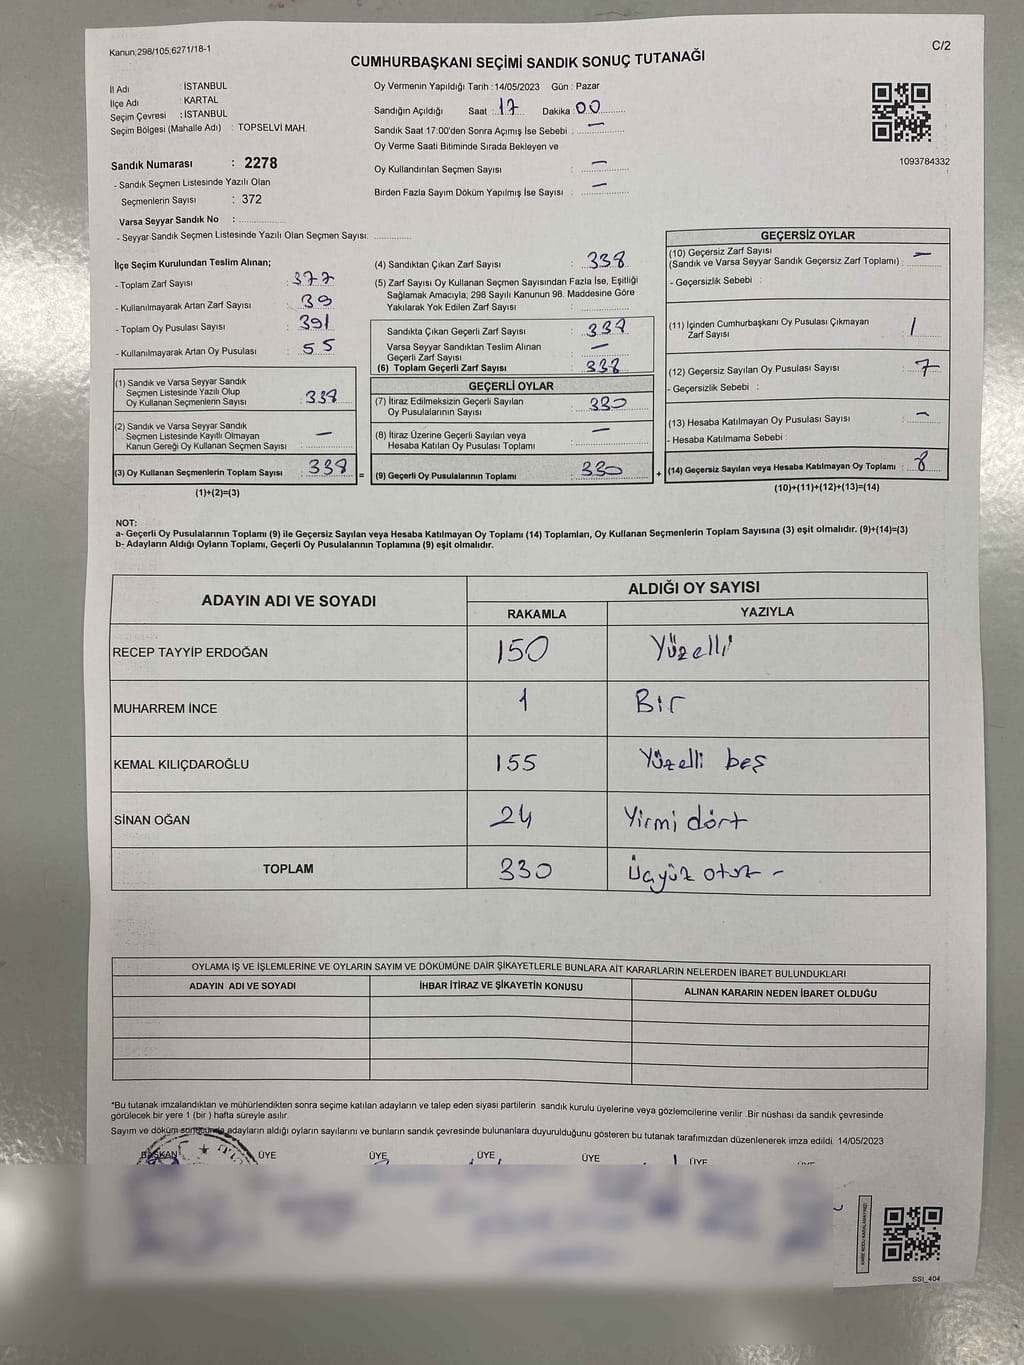 Kanun;298/105;6271/18-1
C/2
CUMHURBAŞKANI SEÇİMİ SANDIK SONUÇ TUTANAĞI
İl Adı : İSTANBUL
İlçe Adı : KARTAL
Seçim Çevresi : İSTANBUL
Seçim Bölgesi (Mahalle Adı) : TOPSELVİ MAH.
Sandık Numarası : 2278
- Sandık Seçmen Listesinde Yazılı Olan
Seçmenlerin Sayısı : 372
Varsa Seyyar Sandık No :
- Seyyar Sandık Seçmen Listesinde Yazılı Olan Seçmen Sayısı:
Oy Vermenin Yapıldığı Tarih : 14/05/2023 Gün : Pazar
Sandığın Açıldığı Saat : 17 Dakika : 00
Sandık Saat 17:00'den Sonra Açımış İse Sebebi : —
Oy Verme Saati Bitiminde Sırada Bekleyen ve
Oy Kullandırılan Seçmen Sayısı : —
Birden Fazla Sayım Döküm Yapılmış İse Sayısı : —
1093784332
İlçe Seçim Kurulundan Teslim Alınan;
- Toplam Zarf Sayısı : 377
- Kullanılmayarak Artan Zarf Sayısı : 39
- Toplam Oy Pusulası Sayısı : 391
- Kullanılmayarak Artan Oy Pusulası : 55
(1) Sandık ve Varsa Seyyar Sandık
Seçmen Listesinde Yazılı Olup
Oy Kullanan Seçmenlerin Sayısı : 338
(2) Sandık ve Varsa Seyyar Sandık
Seçmen Listesinde Kayıtlı Olmayan
Kanun Gereği Oy Kullanan Seçmen Sayısı : —
(3) Oy Kullanan Seçmenlerin Toplam Sayısı : 338 =
(1)+(2)=(3)
(4) Sandıktan Çıkan Zarf Sayısı : 338
(5) Zarf Sayısı Oy Kullanan Seçmen Sayısından Fazla İse, Eşitliği
Sağlamak Amacıyla; 298 Sayılı Kanunun 98. Maddesine Göre
Yakılarak Yok Edilen Zarf Sayısı :
Sandıkta Çıkan Geçerli Zarf Sayısı : 338
Varsa Seyyar Sandıktan Teslim Alınan
Geçerli Zarf Sayısı : —
(6) Toplam Geçerli Zarf Sayısı : 338
GEÇERLİ OYLAR
(7) İtiraz Edilmeksizin Geçerli Sayılan
Oy Pusulalarının Sayısı : 330
(8) İtiraz Üzerine Geçerli Sayılan veya
Hesaba Katılan Oy Pusulası Toplamı : —
(9) Geçerli Oy Pusulalarının Toplamı : 330 +
GEÇERSİZ OYLAR
(10) Geçersiz Zarf Sayısı
(Sandık ve Varsa Seyyar Sandık Geçersiz Zarf Toplamı) : —
- Geçersizlik Sebebi :
(11) İçinden Cumhurbaşkanı Oy Pusulası Çıkmayan
Zarf Sayısı : 1
(12) Geçersiz Sayılan Oy Pusulası Sayısı : 7
- Geçersizlik Sebebi :
(13) Hesaba Katılmayan Oy Pusulası Sayısı : —
- Hesaba Katılmama Sebebi :
(14) Geçersiz Sayılan veya Hesaba Katılmayan Oy Toplamı : 8
(10)+(11)+(12)+(13)=(14)
NOT:
a- Geçerli Oy Pusulalarının Toplamı (9) ile Geçersiz Sayılan veya Hesaba Katılmayan Oy Toplamı (14) Toplamları, Oy Kullanan Seçmenlerin Toplam Sayısına (3) eşit olmalıdır. (9)+(14)=(3)
b- Adayların Aldığı Oyların Toplamı, Geçerli Oy Pusulalarının Toplamına (9) eşit olmalıdır.
ADAYIN ADI VE SOYADI ALDIĞI OY SAYISI
RAKAMLA YAZIYLA
RECEP TAYYİP ERDOĞAN 150 Yüzelli
MUHARREM İNCE 1 Bir
KEMAL KILIÇDAROĞLU 155 Yüzelli beş
SİNAN OĞAN 24 Yirmi dört
TOPLAM 330 Üçyüz otuz -
OYLAMA İŞ VE İŞLEMLERİNE VE OYLARIN SAYIM VE DÖKÜMÜNE DAİR ŞİKAYETLERLE BUNLARA AİT KARARLARIN NELERDEN İBARET BULUNDUKLARI
ADAYIN ADI VE SOYADI İHBAR İTİRAZ VE ŞİKAYETİN KONUSU ALINAN KARARIN NEDEN İBARET OLDUĞU
*Bu tutanak imzalandıktan ve mühürlendikten sonra seçime katılan adayların ve talep eden siyasi partilerin sandık kurulu üyelerine veya gözlemcilerine verilir. Bir nüshası da sandık çevresinde
görülecek bir yere 1 (bir ) hafta süreyle asılır.
Sayım ve döküm sonucunda adayların aldığı oyların sayılarını ve bunların sandık çevresinde bulunanlara duyurulduğunu gösteren bu tutanak tarafımızdan düzenlenerek imza edildi. 14/05/2023
BAŞKAN ÜYE ÜYE ÜYE ÜYE ÜYE
SSİ_404